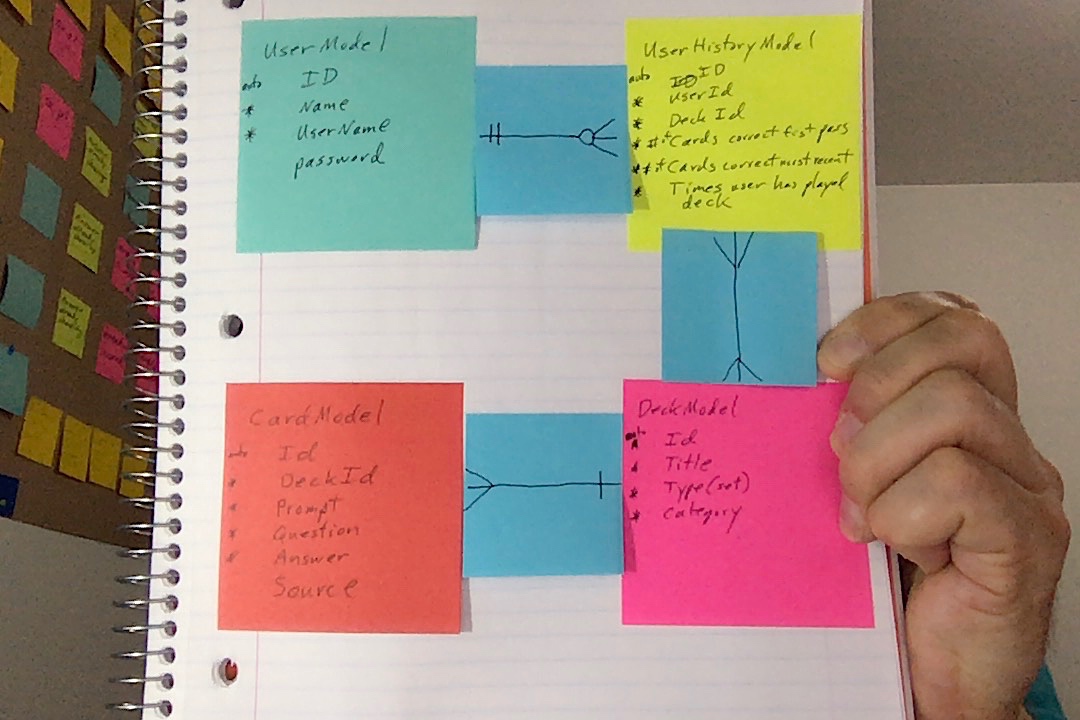 UserModel
auto ID
* Name
* UserName
password
UserHistoryModel
auto ID
* UserId
* Deck Id
* #+Cards correct first pass
* #+Cards correct most recent
* Times user has played
deck
CardModel
auto Id
* DeckId
* Prompt
* Question
* Answer
Source
DeckModel
auto
* Id
* Title
* Type(set)
* Category